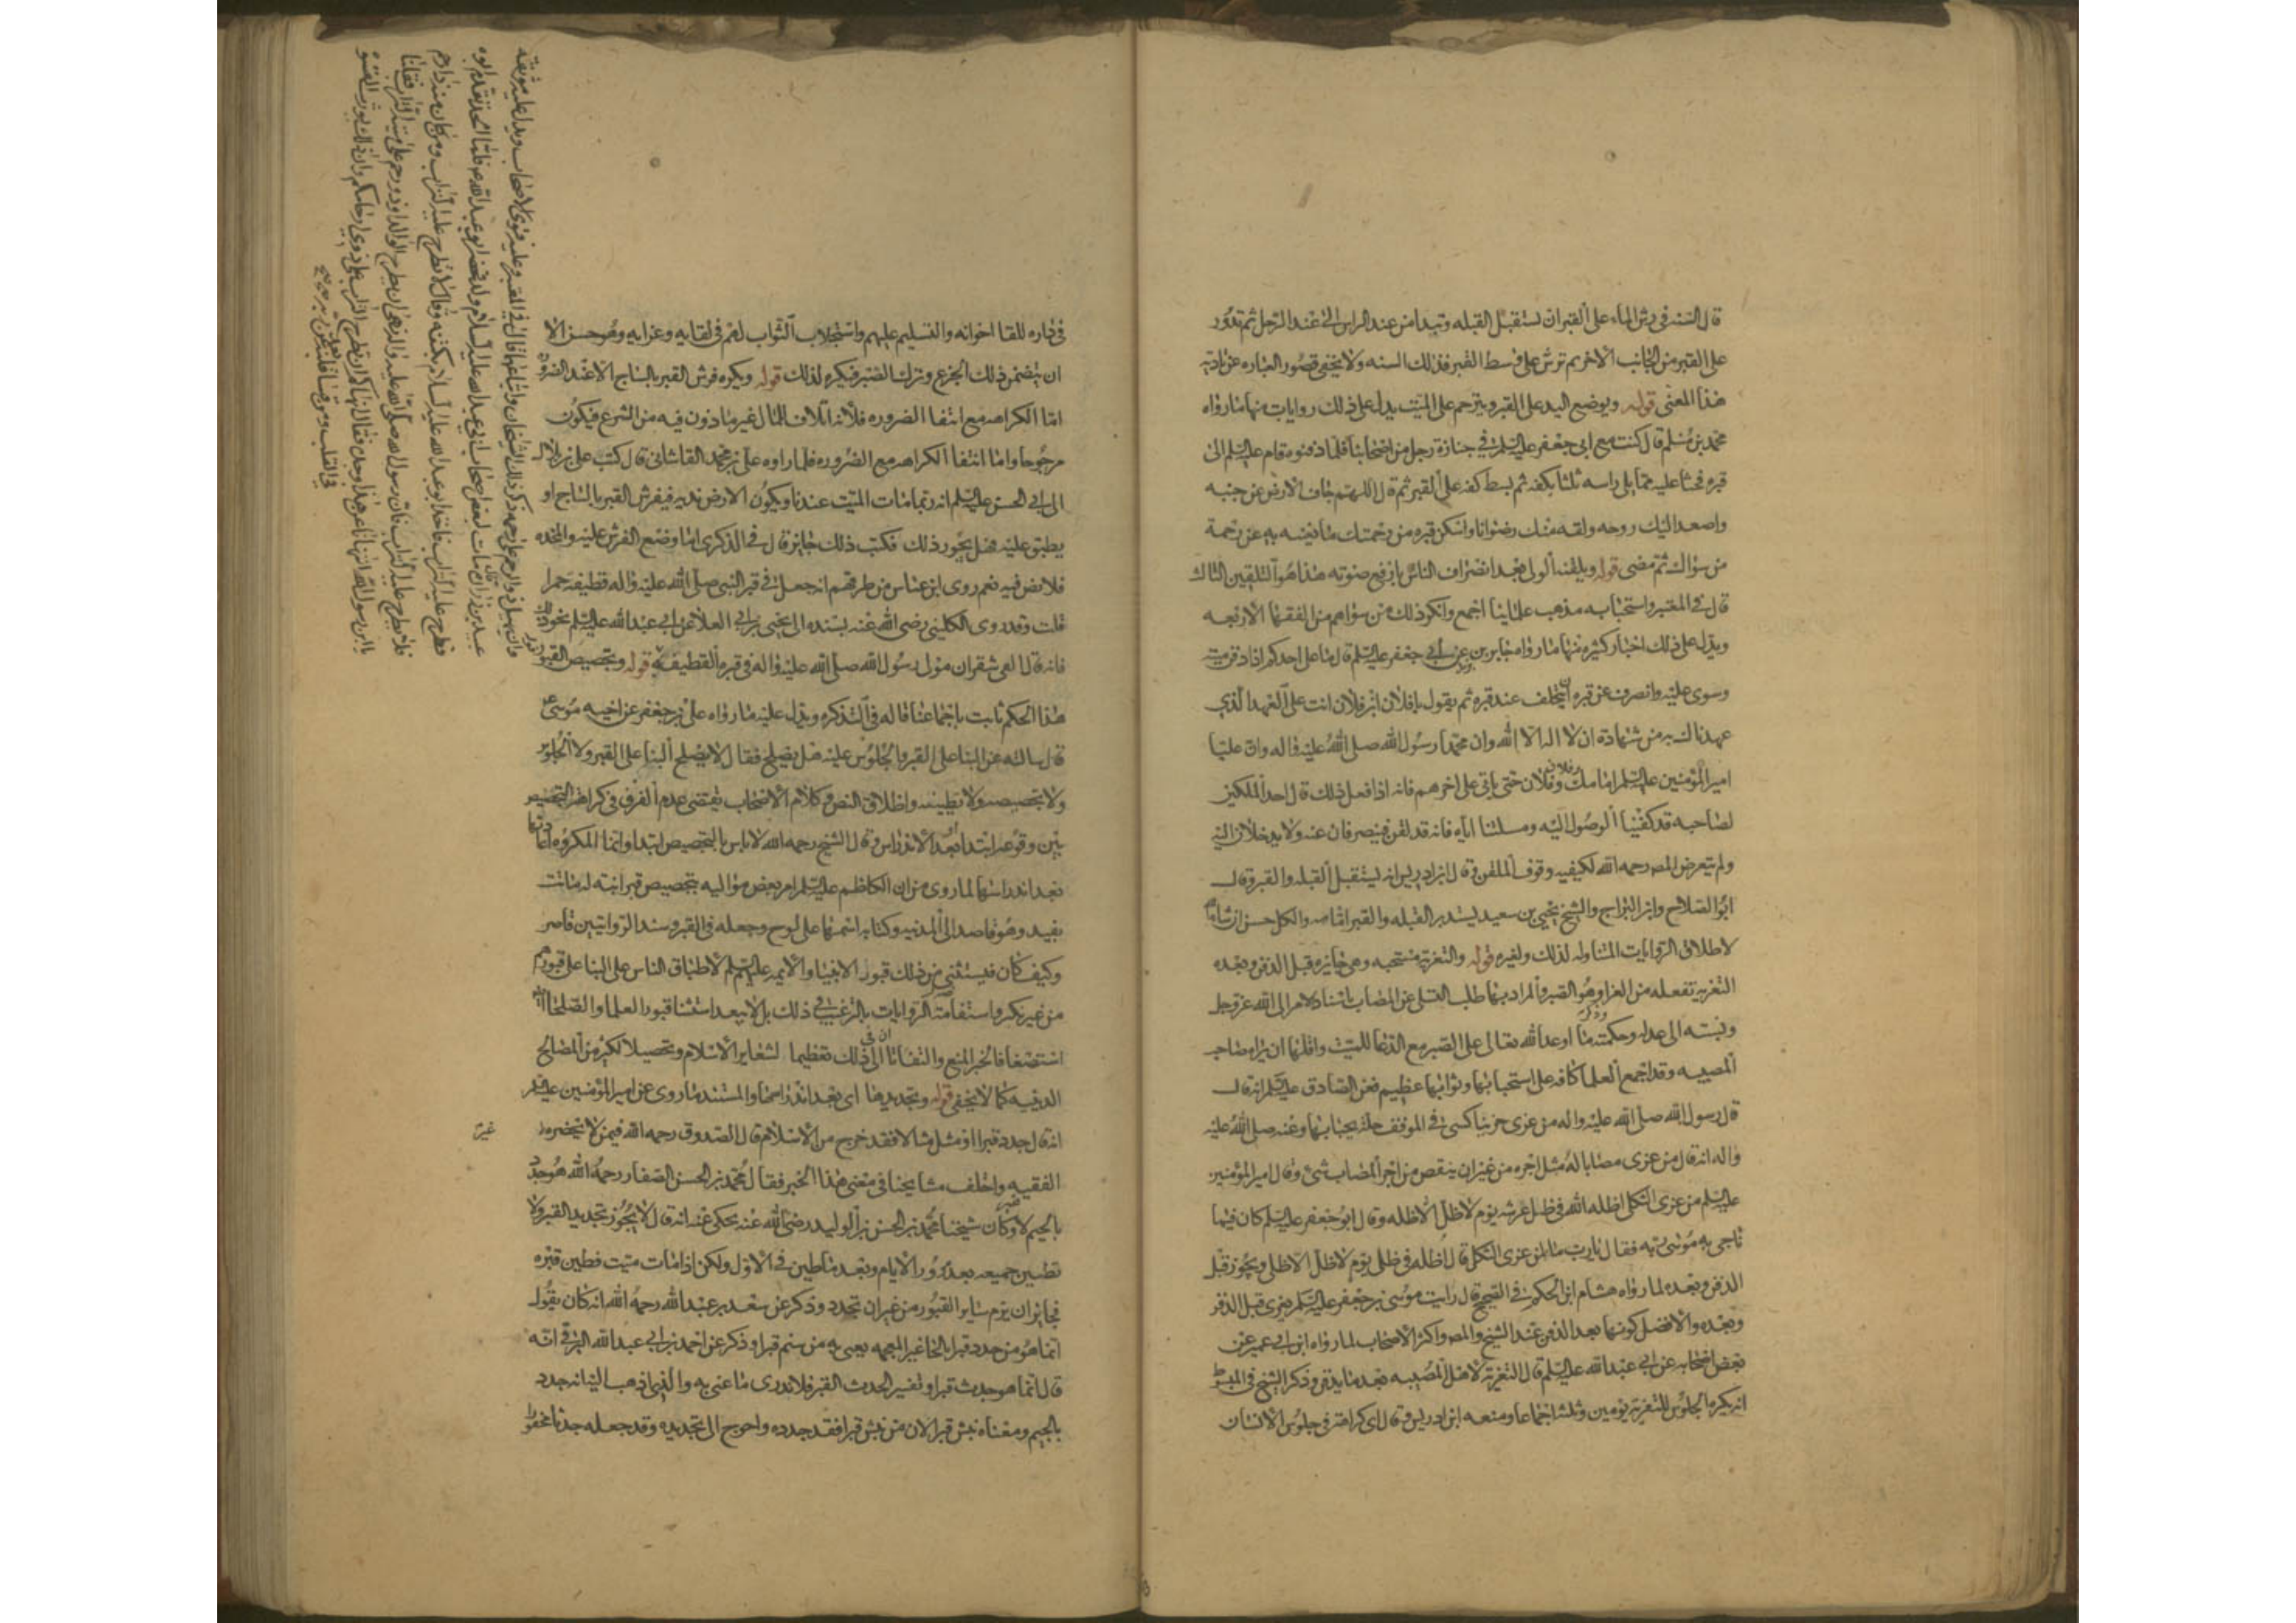 قال السنه فى رش الماء على القبر ان تستقبل القبله وتبدا من عند الراس الى عند الرجل ثم تدور
على القبر من الجانب الاخر ثم ترش على وسط القبر فذلك السنه ولا يخفى قصور العباره عن تاديه
هذا المعنى قوله ويوضع اليد على القبر ويترحم على الميت يدل على ذلك روايات منها ما رواه
محمد بن مسلم قال كنت مع ابى جعفر عليه السلم فى جنازة رجل من اصحابنا فلما دفنوه قام عليه السلم الى
قبره فحثا عليه مما يلى راسه ثلثا بكفه ثم بسط كفه على القبر ثم قال اللهم جاف الارض عن جنبيه
واصعد اليك روحه ولقه منك رضوانا واسكن قبره من رحمتك ما تغنيه به عن رحمة
من سواك ثم مضى قوله ويلقنه الولى بعد انصراف الناس بارفع صوته هذا هو التلقين الثالث
قال فى المعتبر واستحبابه مذهب علمائنا اجمع وانكر ذلك من سواهم من الفقها الاربعه
ويدل على ذلك اخبار كثيره منها ما رواه جابر بن يزيد عن ابى جعفر عليه السلم قال ما على احدكم اذا دفن ميته
وسوى عليه وانصرف عن قبره ان يتخلف عند قبره ثم يقول يا فلان ابن فلان انت على العهد الذي
عهدناك به من شهادة ان لا اله الا الله وان محمدا رسول الله صلى الله عليه واله وان عليا
امير المؤمنين عليه السلم امامك وفلان وفلان حتى ياتى على اخرهم فانه اذا فعل ذلك قال احد الملكين
لصاحبه قد كفينا الوصول اليه ومسلتنا اياه فانه قد لقن فينصرفان عنه ولا يدخلان اليه
ولم يتعرض المصه رحمه الله لكيفيه وقوف الملقن وقال ابن ادريس انه يستقبل القبله والقبر وقال
ابو الصلاح وابن البراج والشيخ يحيى بن سعيد يستدبر القبله والقبر امامه والكل حسن ان شا الله
لاطلاق الروايات المتناوله لذلك ولغيره قوله والتعزيه مستحبه وهى جايزه قبل الدفن وبعده
التعزيه تفعله من العزا وهو الصبر والمراد بها طلب التسلى عن المصاب باسناد الامر الى الله عز وجل
ونسبته الى عدله وحكمته وذكر ما اوعد الله تعالى على الصبر مع الدعا للميت واقلها ان يراه صاحب
المصيبه وقد اجمع العلما كافه على استحبابها وثوابها عظيم فعن الصادق عليه السلم انه قال
قال رسول الله صلى الله عليه واله من عزى حزينا كسى فى الموقف حلة يحبا بها وعنه صلى الله عليه
واله انه قال من عزى مصابا له مثل اجره من غير ان ينقص من اجر المصاب شئ وقال امير المؤمنين
عليه السلم من عزى الثكلى اظله الله فى ظل عرشه يوم لا ظل الا ظله وقال ابو جعفر عليه السلم كان فيما
ناجى به موسى ربه فقال يارب ما لمن عزى الثكلى قال اظله فى ظلى يوم لا ظل الا ظلى ويجوز قبل
الدفن وبعده لما رواه هشام ابن الحكم فى الصحيح قال رايت موسى بن جعفر عليه السلم يعزى قبل الدفن
وبعده والافضل كونها بعد الدفن عند الشيخ والمصه واكثر الاصحاب لما رواه ابن ابى عمير عن
بعض اصحابه عن ابى عبد الله عليه السلم قال التعزيه لاهل المصيبه بعد ما يدفن وذكر الشيخ فى المبسوط
انه يكره الجلوس للتعزيه يومين وثلثا اجماعا ومنعه ابن ادريس وقال اى كراهة فى جلوس الانسان
فى داره للقا اخوانه والتسليم عليهم واستجلاب الثواب لهم فى لقايه وعزايه وهو حسن الا
ان يتضمن ذلك الجزع وترك الصبر فيكره لذلك قوله ويكره فرش القبر بالساج الا عند الضروره
اما الكراهه مع انتفا الضروره فلانه اتلاف للمال غير ماذون فيه من الشرع فيكون
مرجوحا واما انتفا الكراهه مع الضروره فلما رواه على بن محمد القاشانى قال كتب على بن بلال
الى ابى الحسن عليه السلم انه ربما مات الميت عندنا ويكون الارض نديه فيفرش القبر بالساج او
يطبق عليه فهل يجوز ذلك فكتب ذلك جايز قال فى الذكرى اما وضع الفرش عليه والمخده
فلا نص فيه نعم روى ابن عباس من طرقهم انه جعل فى قبر النبى صلى الله عليه واله قطيفه حمرا
قلت وقد روى الكلينى رضى الله عنه بسنده الى يحيى بن ابى العلا عن ابى عبد الله عليه السلم نحو ذلك
فانه قال القى شقران مولى رسول الله صلى الله عليه واله فى قبره القطيفه قوله وتجصيص القبور
هذا الحكم ثابت باجماعنا قاله فى التذكره ويدل عليه ما رواه على بن جعفر عن اخيه موسى ع
قال سالته عن البنا على القبر والجلوس عليه هل يصلح فقال لا يصلح البنا على القبر ولا الجلوس
ولا تجصيصه ولا تطيينه واطلاق النص وكلام الاصحاب يقتضى عدم الفرق فى كراهة التجصيص
بين وقوعه ابتدا او بعد الاندراس وقال الشيخ رحمه الله لا باس بالتجصيص ابتدا وانما المكروه اعادتها
بعد اندراسها لما روى من ان الكاظم عليه السلم امر بعض مواليه بتجصيص قبر ابنة له ماتت
بفيد وهو قاصد الى المدينه وكتابه اسمها على لوح وجعله فى القبر وسند الروايتين قاصر
وكيف كان فيستثنى من ذلك قبور الانبيا والايمه عليهم السلم لاطباق الناس على البنا على قبورهم
من غير نكير واستفاضة الروايات بالترغيب فى ذلك بل لا يبعد استثنا قبور العلما والصلحا ايضا
استضعافا لخبر المنع والتفاتا الى ان فى ذلك تعظيما لشعاير الاسلام وتحصيلا لكثير من المصالح
الدينيه كما لا يخفى قوله وتجديدها اى بعد اندراسها والمستند ما روى عن امير المؤمنين عليه السلم
انه قال من جدد قبرا او مثل مثالا فقد خرج من الاسلام قال الصدوق رحمه الله فيمن لا يحضره
الفقيه واختلف مشايخنا فى معنى هذا الخبر فقال محمد بن الحسن الصفار رحمه الله هو جدد
بالجيم لا غير وكان شيخنا محمد بن الحسن بن الوليد رضى الله عنه يحكى عنه انه قال لا يجوز تجديد القبر ولا
تطيين جميعه بعد مرور الايام وبعد ما طين فى الاول ولكن اذا مات ميت فطين قبره
فجايز ان يرم ساير القبور من غير ان تجدد وذكر عن سعد بن عبد الله رحمه الله انه كان يقول
انما هو من حدد قبرا بالحا غير المعجمه يعنى به من سنم قبرا وذكر عن احمد بن ابى عبد الله البرقى انه
قال انما هو جدث قبرا وتفسير الجدث القبر فلا ندرى ما عنى به والذى اذهب اليه انه جدد
بالجيم ومعناه نبش قبرا لان من نبش قبرا فقد جدده واحوج الى تجديده وقد جعله جدثا محفورا
غير